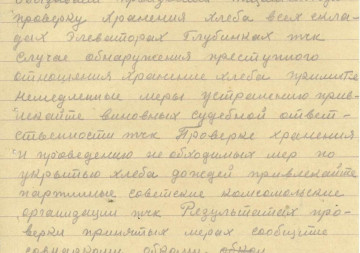 проверку хранения хлеба всех скла-
дах Элеваторах Глубинках тчк
Случае обнаружения преступного
отношения хранение хлеба примите
немедленные меры устранению прив-
лекайте виновных судебной ответ-
ственности тчк Проверке хранения
и проведению необходимых мер по
укрытью хлеба дождей привлекайте
партийные советские комсомольские
организации тчк Результатах про-
верки принятых мерах сообщите
совнаркому обкому